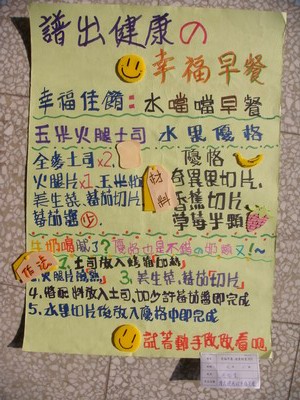 譜出健康の
幸福早餐
幸福佳餚：水噹噹早餐
玉米火腿土司 水果優格
全麥土司x2. 優格
火腿片x1 玉米粒 材料 奇異果切片.
美生菜. 蕃茄切片. 香蕉切片.
蕃茄醬 草莓半顆
牛奶喝膩了？優格也是不錯の奶類又！～
作法 1. 土司放入烤箱
2. 火腿片 3. 美生菜. 蕃茄切片
4. 將配料放入土司, 加少許蕃茄醬即完成
5. 水果切片後放入優格中即完成
試著動手做做看吧